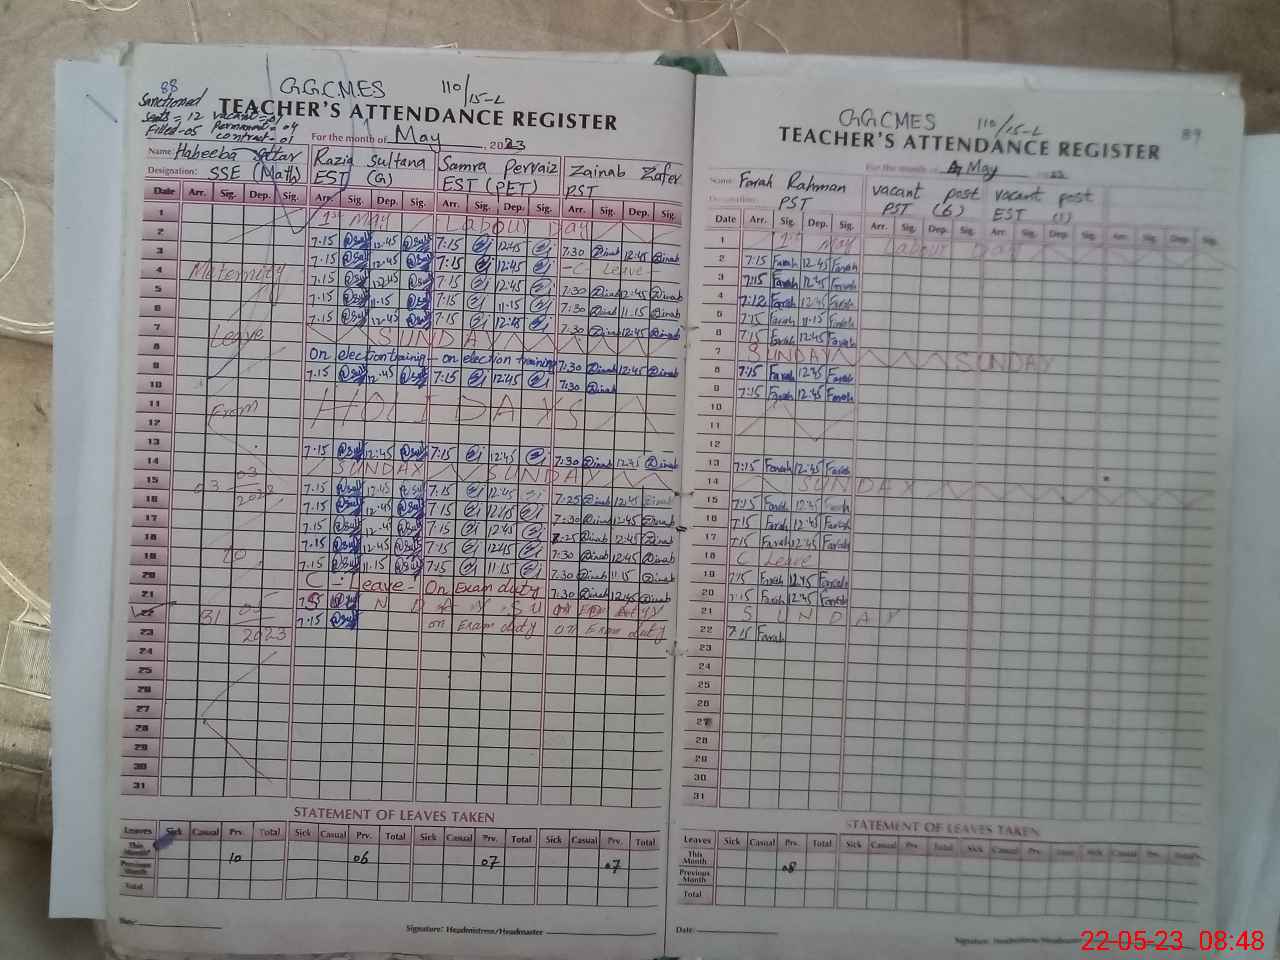 88
G.G.C.M.E.S 110/15-L
Sanctioned
Seats = 12 vacant = 07
Filled = 05 Permanent = 04
contract = 01
TEACHER'S ATTENDANCE REGISTER
For the month of May, 2023
Name: Habeeba Sattar Razia Sultana Samra Pervaiz Zainab Zafer
Designation: SSE (Math) EST (G) EST (PET) PST
Date Arr. Sig. Dep. Sig. Arr. Sig. Dep. Sig. Arr. Sig. Dep. Sig. Arr. Sig. Dep. Sig.
1 1st May Labour Day
2 7:15 12:45 7:15 12:45 7:30 Zinab 12:45 Zinab
3 7:15 12:45 7:15 12:45 - C. Leave -
4 Maternity 7:15 12:45 7:15 12:45 7:30 Zinab 12:45 Zinab
5 7:15 11:15 7:15 11:15 7:30 Zinab 11:15 Zinab
6 7:15 12:45 7:15 12:45 7:30 Zinab 12:45 Zinab
7 Leave SUNDAY
8 On election training - on election training 7:30 Zinab 12:45 Zinab
9 7:15 12:45 7:15 12:45 7:30 Zinab
10
11 From HOLIDAYS
12
13 7:15 12:45 7:15 12:45 7:30 Zinab 12:45 Zinab
14 03 SUNDAY SUNDAY
15 03 2023 7:15 12:45 7:15 12:45 7:25 Zinab 12:45 Zinab
16 7:15 12:45 7:15 12:15 7:30 Zinab 12:45 Zinab
17 7:15 12:45 7:15 12:45 7:25 Zinab 12:45 Zinab
18 To 7:15 12:45 7:15 12:45 7:30 Zinab 12:45 Zinab
19 7:15 11:15 7:15 11:15 7:30 Zinab 11:15 Zinab
20 C. Leave - On Exam duty 7:30 Zinab 12:45 Zinab
21 SUNDAY SU
22 31 05 7:15 on Exam duty on Exam duty
23 2023
24
25
26
27
28
29
30
31
STATEMENT OF LEAVES TAKEN
Leaves Sick Casual Prv. Total Sick Casual Prv. Total Sick Casual Prv. Total Sick Casual Prv. Total
This Month
Previous Month 10 06 07 07
Total
Date:
Signature: Headmistress/Headmaster
89
G.G.CMES 110/15-L
TEACHER'S ATTENDANCE REGISTER
For the month of May
Name: Farah Rahman vacant post vacant post
Designation: PST PST (6) EST (1)
Date Arr. Sig. Dep. Sig. Arr. Sig. Dep. Sig. Arr. Sig. Dep. Sig. Arr. Sig. Dep. Sig.
1 1st May Labour Day
2 7:15 Farah 12:45 Farah
3 7:15 Farah 12:45 Farah
4 7:12 Farah 12:45 Farah
5 7:15 Farah 11:15 Farah
6 7:15 Farah 12:45 Farah
7 SUNDAY SUNDAY
8 7:15 Farah 12:45 Farah
9 7:15 Farah 12:45 Farah
10
11
12
13 7:15 Farah 12:45 Farah
14 SUNDAY
15 7:15 Farah 12:45 Farah
16 7:15 Farah 12:45 Farah
17 7:15 Farah 12:45 Farah
18 C Leave
19 7:15 Farah 12:45 Farah
20 7:15 Farah 12:45 Farah
21 SUNDAY
22 7:15 Farah
23
24
25
26
27
28
29
30
31
STATEMENT OF LEAVES TAKEN
Leaves Sick Casual Prv. Total Sick Casual Prv. Total Sick Casual Prv. Total Sick Casual Prv. Total
This Month
Previous Month 08
Total
Date:
Signature: Headmistress/Headmaster
22-05-23 08:48